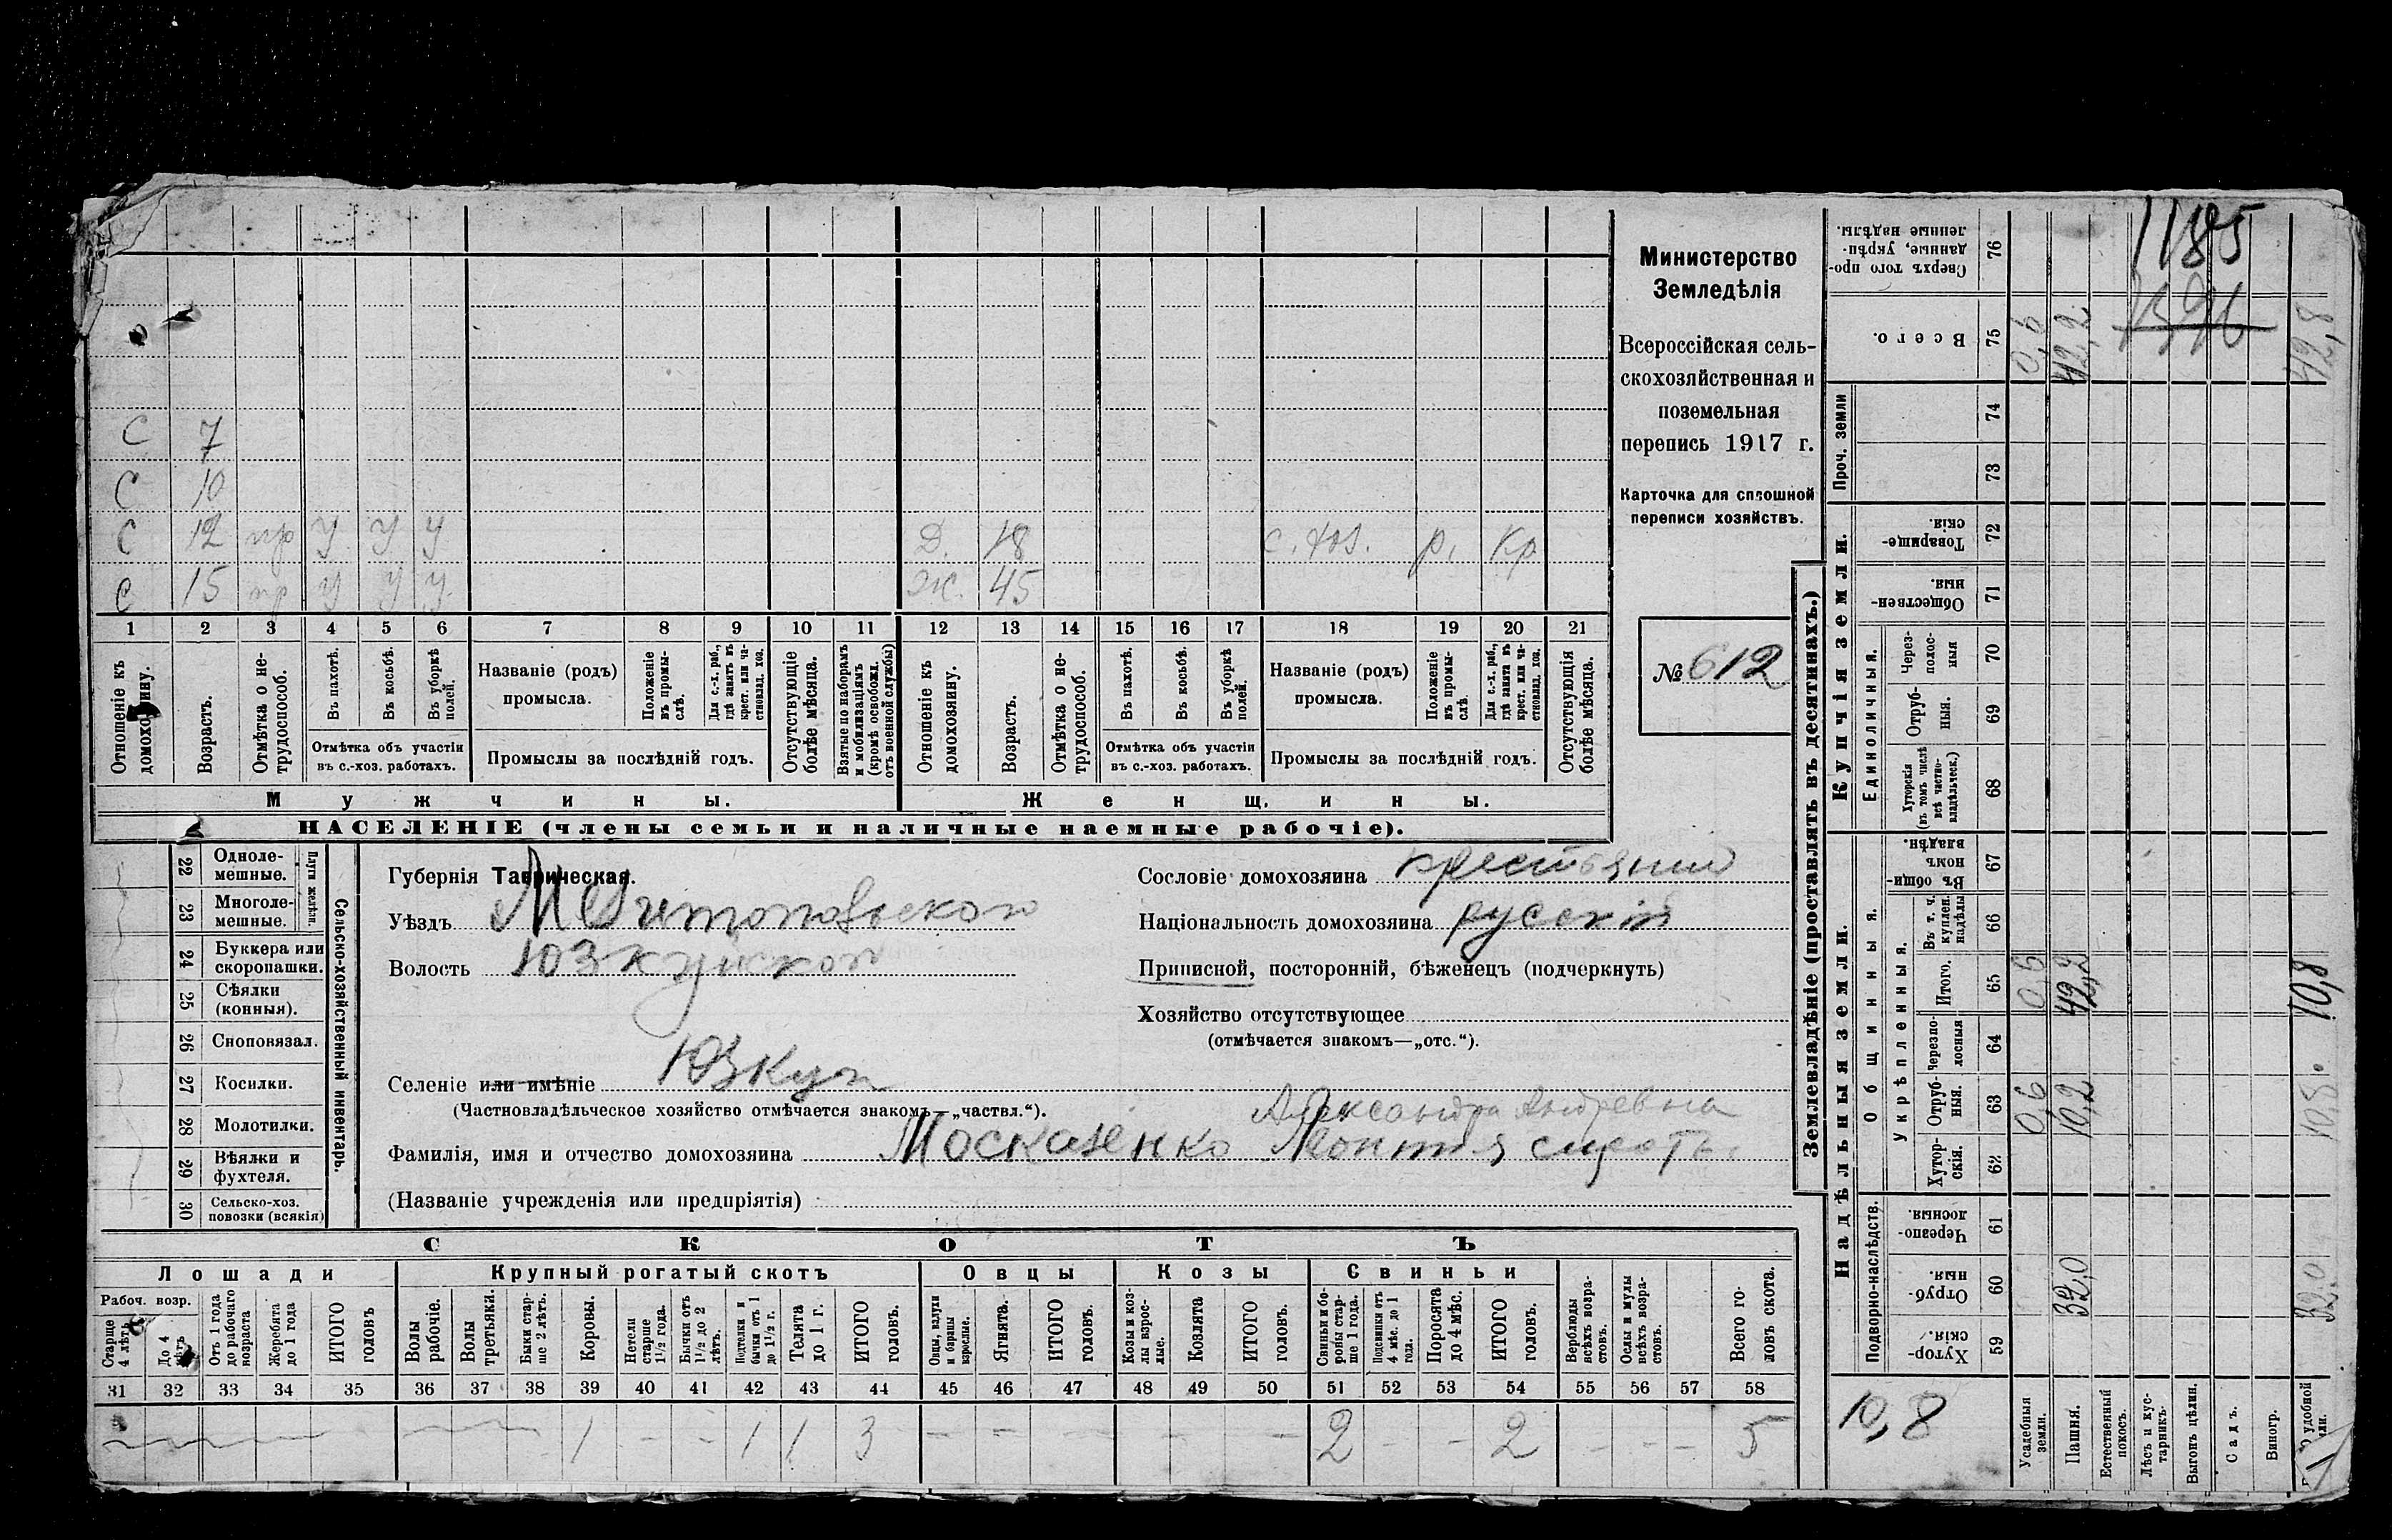 С 7
С 10
С 12 пр у у у Д. 18 с. хоз. р. кр
С 15 пр у у у Ж. 45
1 2 3 4 5 6 7 8 9 10 11 12 13 14 15 16 17 18 19 20 21
Отношеніе къ домохозяину.
Возрастъ.
Отмѣтка о не-трудоспособ.
Въ пахотѣ.
Въ косьбѣ.
Въ уборкѣ полей.
Отмѣтка объ участіи
въ с.-хоз. работахъ.
Названіе (родъ)
промысла.
Положеніе въ промы-слѣ.
Для с.-х. раб., гдѣ занятъ въ крест. или ча-стновлад. хоз.
Промыслы за послѣдній годъ.
Отсутствующіе болѣе мѣсяца.
Взятые по наборамъ и мобилизаціямъ (кромѣ освобожд. отъ военной службы)
Отношеніе къ домохозяину.
Возрастъ.
Отмѣтка о не-трудоспособ.
Въ пахотѣ.
Въ косьбѣ.
Въ уборкѣ полей.
Отмѣтка объ участіи
въ с.-хоз. работахъ.
Названіе (родъ)
промысла.
Положеніе въ промы-слѣ.
Для с.-х. раб., гдѣ занятъ въ крест. или ча-стновлад. хоз.
Промыслы за послѣдній годъ.
Отсутствующія болѣе мѣсяца.
Мужчины. Женщины.
НАСЕЛЕНІЕ (члены семьи и наличные наемные рабочіе).
Министерство
Земледѣлія
Всероссійская сель-
скохозяйственная и
поземельная
перепись 1917 г.
Карточка для сплошной
переписи хозяйствъ.
№ 612
Плуги желѣзн.
22 Одноле-мешные.
23 Многоле-мешные.
24 Буккера или скоропашки.
25 Сѣялки (конныя).
26 Сноповязал.
27 Косилки.
28 Молотилки.
29 Вѣялки и фухтеля.
30 Сельско-хоз. повозки (всякія)
Сельско-хозяйственный инвентарь.
Губернія Таврическая.
Уѣздъ
Волость Юзкуйской
Селеніе или имѣніе Юзкуи
(Частновладѣльческое хозяйство отмѣчается знакомъ—„частвл.“).
Александра Андревна
Фамилія, имя и отчество домохозяина Москаленко
(Названіе учрежденія или предпріятія)
Сословіе домохозяина крестьянин
Національность домохозяина русскій
Приписной, посторонній, бѣженецъ (подчеркнуть)
Хозяйство отсутствующее
(отмѣчается знакомъ—„отс.“).
СКОТЪ
Лошади Крупный рогатый скотъ Овцы Козы Свиньи
Рабоч. возр.
Старше 4 лѣтъ
До 4 лѣтъ
Отъ 1 года до рабочаго возраста
Жеребята до 1 года
ИТОГО головъ
Волы рабочіе.
Волы третьяки.
Быки стар-ше 2 лѣтъ.
Коровы.
Нетели старше 1½ года.
Бычки отъ 1½ до 2 лѣтъ.
Подтелки и бычки отъ 1 до 1½ г.
Телята до 1 г.
ИТОГО головъ.
Овцы, валухи и бараны взрослые.
Ягнята.
ИТОГО головъ.
Козы и коз-лы взрос-лые.
Козлята
ИТОГО головъ.
Свиньи и бо-ровы стар-ше 1 года.
Подсвинки отъ 4 мѣс. до 1 года.
Поросята до 4 мѣс.
ИТОГО головъ.
Верблюды всѣхъ возра-стовъ.
Ослы и мулы всѣхъ возра-стовъ.
Всего го-ловъ скота.
31 32 33 34 35 36 37 38 39 40 41 42 43 44 45 46 47 48 49 50 51 52 53 54 55 56 57 58
1 - - 1 1 3 - - - - - 2 - - 2 - - - 5
Землевладѣніе (проставлять въ десятинахъ.)
1185
Сверхъ того про-данные, укрѣп-ленные надѣлы. 76
Всего. 75 0,6 42,2 42,8
Проч. земли 74
73
Купчія земли.
Товарище-скія. 72
Обществен-ныя. 71
Единоличныя.
Через-полос-ныя 70
Отруб-ныя. 69
Хуторскія (въ томъ числѣ всѣ частно-владѣльческ.) 68
Надѣльныя земли.
Общинныя.
Въ общи-номъ владѣн. 67
Укрѣпленныя.
Въ т. ч. куплен. надѣлы 66
Итого. 65 0,6 42,2 10,8
Черезпо-лосныя 64
Отруб-ныя. 63 0,6 10,2 10,8
Хутор-скія. 62
Подворно-наслѣдств.
Черезпо-лосныя. 61
Отруб-ныя. 60 32,0 32,0
Хутор-скія. 59
10,8
Усадебныя земли.
Пашня.
Естественный покосъ.
Лѣсъ и кус-тарникъ.
Выгонъ цѣлин.
Садъ.
Виногр.
удобной